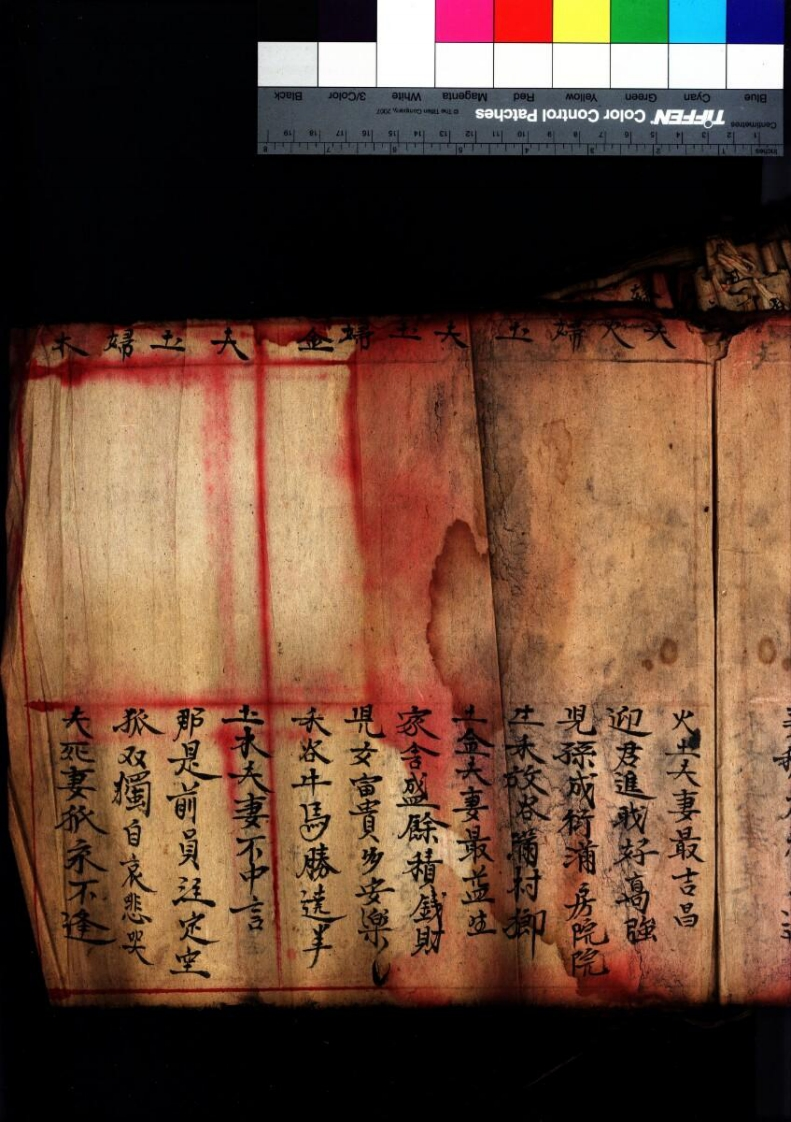 夫火婦土
火土夫妻最吉昌
迎君進戝好高強
児孫成行滿房院院
生禾放谷滿村鄉
夫土婦金
土金夫妻最益生
家舍盛餘積錢財
児女富貴多安樂
禾谷牛馬勝羊
夫土婦木
土木夫妻不中言
那是前員註定空
孤双獨自哀悲哭
夫死妻孤永不逢
TIFFEN Color Control Patches
© The Tiffen Company, 2007
Blue Cyan Green Yellow Red Magenta White 3/Color Black
Centimetres 1 2 3 4 5 6 7 8 9 10 11 12 13 14 15 16 17 18 19
Inches 1 2 3 4 5 6 7 8